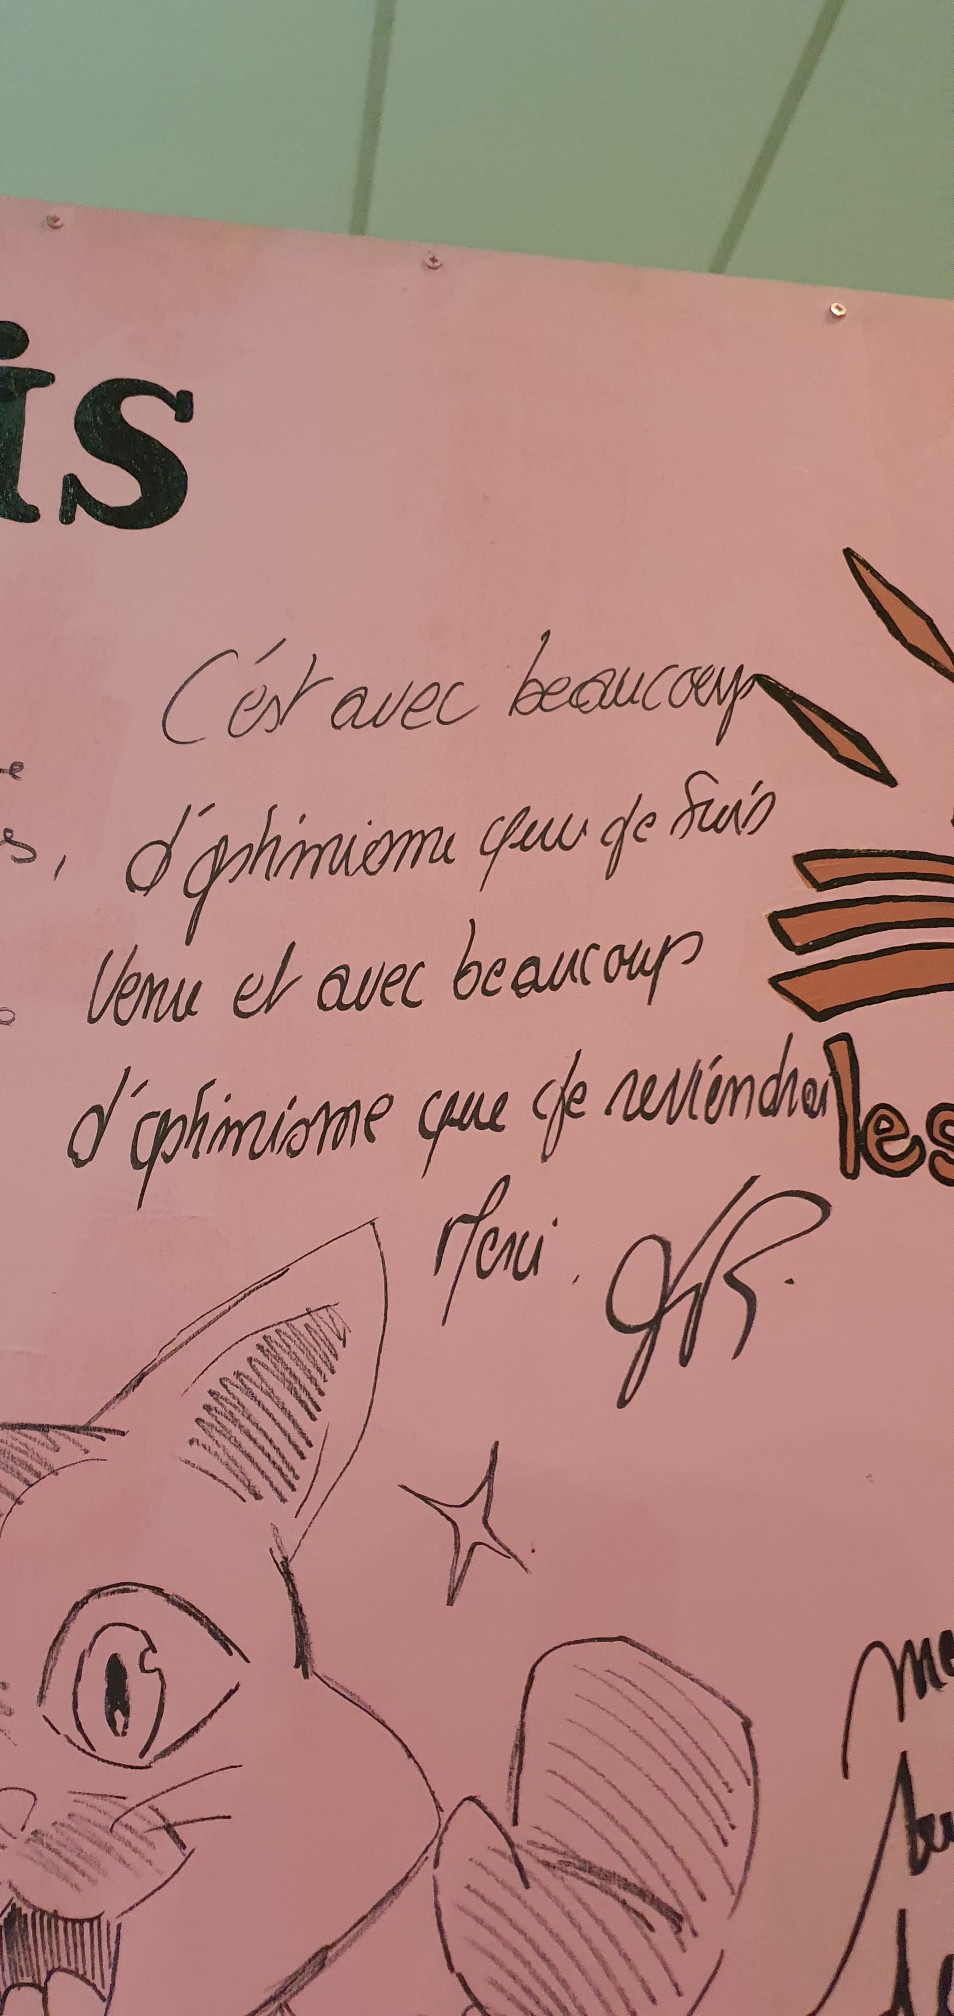 is
C'est avec beaucoup
d'optimisme que je suis
Venu et avec beaucoup
d'optimisme que je reviendrai
les
Merci.